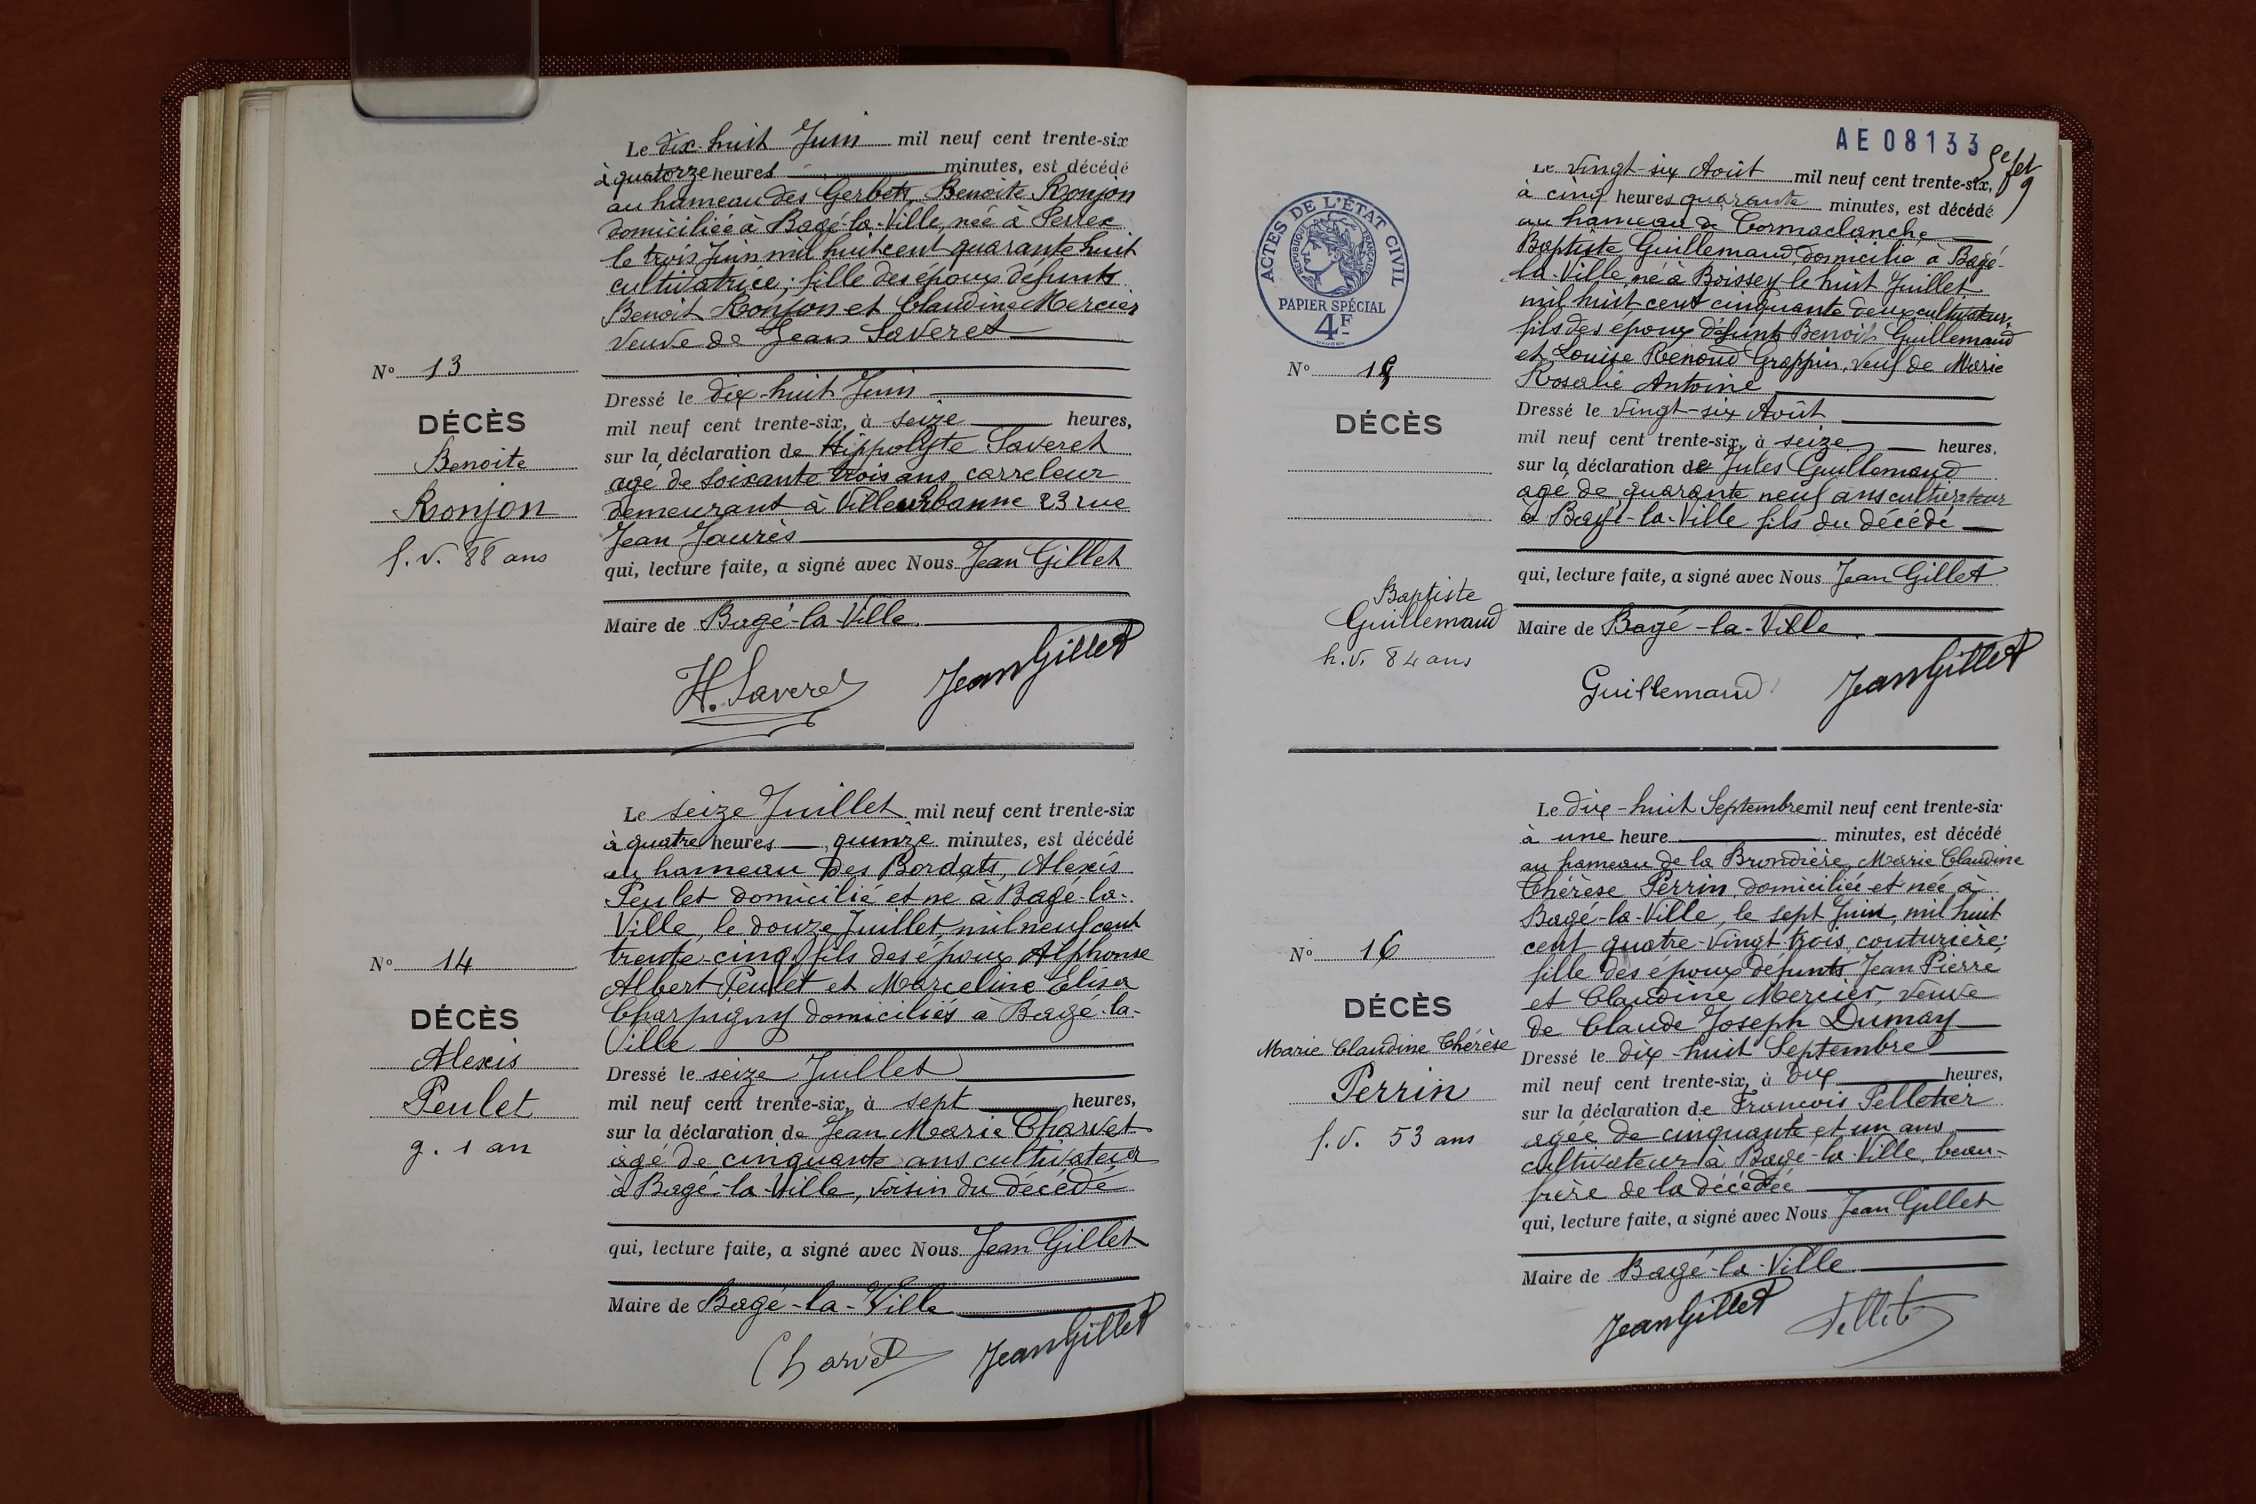 Le dix-huit Juin mil neuf cent trente-six
à quatorze heures minutes, est décédé
au hameau des Gerbets, Benoite Ronjon
domiciliée à Bagé-la-Ville, née à Perrex
le trois Juin mil huit cent quarante huit
cultivatrice; fille des époux défunts
Benoit Ronjon et Claudine Mercier
veuve de Jean Saveret
N° 13
DÉCÈS
Benoite
Ronjon
f. v. 88 ans
Dressé le dix-huit Juin
mil neuf cent trente-six, à seize heures,
sur la déclaration de Hippolyte Saveret
agé de soixante trois ans carreleur
demeurant à Villeurbanne 23 rue
Jean Jaurès
qui, lecture faite, a signé avec Nous Jean Gillet
Maire de Bagé-la-Ville
H. Saveret Jean Gillet
Le seize Juillet mil neuf cent trente-six
à quatre heures quinze minutes, est décédé
au hameau des Bordats, Alexis
Peulet domicilié et né à Bagé-la-
Ville, le douze Juillet, mil neuf cent
trente-cinq, fils des époux Alphonse
Albert Peulet et Marceline Elisa
Charpigny domiciliés à Bagé-la-
Ville
N° 14
DÉCÈS
Alexis
Peulet
g. 1 an
Dressé le seize Juillet
mil neuf cent trente-six, à sept heures,
sur la déclaration de Jean Marie Charvet
agé de cinquante ans cultivateur
à Bagé-la-Ville, voisin du décédé
qui, lecture faite, a signé avec Nous Jean Gillet
Maire de Bagé-la-Ville
Charvet Jean Gillet
AE08133
ACTES DE L'ÉTAT CIVIL
RÉPUBLIQUE FRANÇAISE
PAPIER SPÉCIAL
4F
Le vingt-six Août mil neuf cent trente-six,
à cinq heures quarante minutes, est décédé
au hameau de Cormaclanche
Baptiste Guillemaud, domicilié à Bagé-
la-Ville, né à Boissey le huit Juillet
mil huit cent cinquante deux cultivateur,
fils des époux défunts Benoit Guillemaud
et Louise Renoud Grappin, veuf de Marie
Rosalie Antoine
N° 15
DÉCÈS
Baptiste
Guillemaud
h. v. 84 ans
Dressé le vingt-six Août
mil neuf cent trente-six, à seize heures,
sur la déclaration de Jules Guillemaud
age de quarante neuf ans cultivateur
à Bagé-la-Ville fils du décédé
qui, lecture faite, a signé avec Nous Jean Gillet
Maire de Bagé-la-Ville
Guillemaud Jean Gillet
Le dix-huit Septembre mil neuf cent trente-six
à une heure minutes, est décédé
au hameau de la Brondière, Marie Claudine
Thérèse Perrin, domiciliée et née à
Bagé-la-Ville, le sept Juin, mil huit
cent quatre-vingt trois couturière;
fille des époux défunts Jean Pierre
et Claudine Mercier, veuve
de Claude Joseph Dumay
N° 16
DÉCÈS
Marie Claudine Thérèse
Perrin
f. v. 53 ans
Dressé le dix-huit Septembre
mil neuf cent trente-six, à dix heures,
sur la déclaration de François Pelletier
agée de cinquante et un ans
cultivateur à Bagé-la-Ville, beau-
frère de la décédée
qui, lecture faite, a signé avec Nous Jean Gillet
Maire de Bagé-la-Ville
Jean Gillet